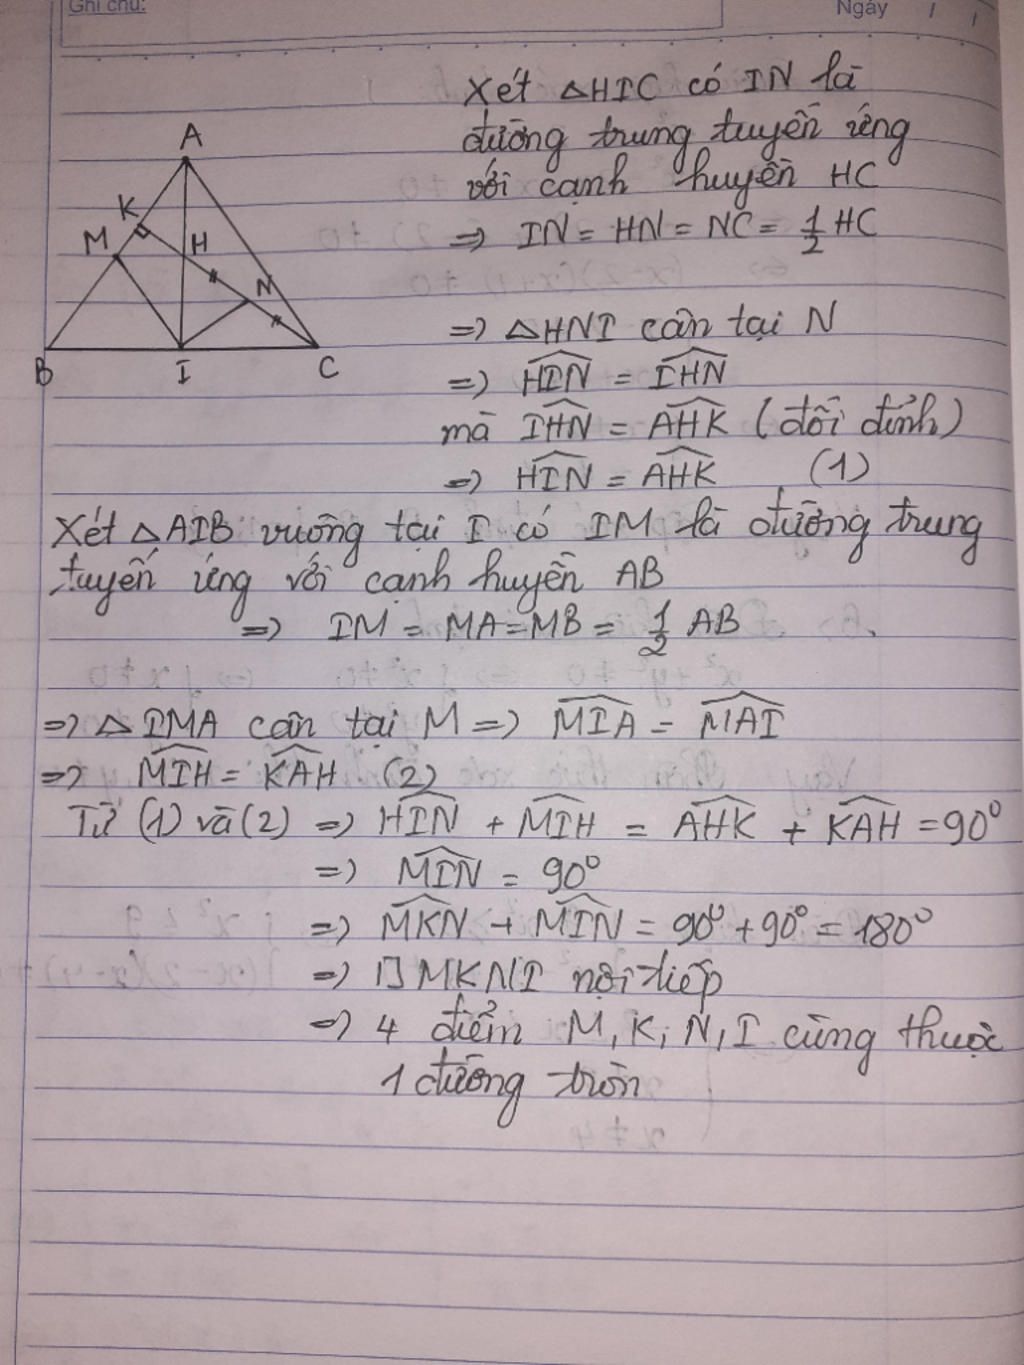 Ghi chú:
Ngày / /
Xét △HIC có IN là
đường trung tuyến ứng
với cạnh huyền HC
=> IN = HN = NC = 1/2 HC
A
K
M
H
N
B
I
C
=> △HNI cân tại N
=> HIN = IHN
mà IHN = AHK (đối đỉnh)
=> HIN = AHK (1)
Xét △AIB vuông tại I có IM là đường trung
tuyến ứng với cạnh huyền AB
=> IM = MA = MB = 1/2 AB
=> △IMA cân tại M => MIA = MAI
=> MIH = KAH (2)
Từ (1) và (2) => HIN + MIH = AHK + KAH = 90°
=> MIN = 90°
=> MKN + MIN = 90° + 90° = 180°
=> MKNI nội tiếp
=> 4 điểm M, K, N, I cùng thuộc
1 đường tròn